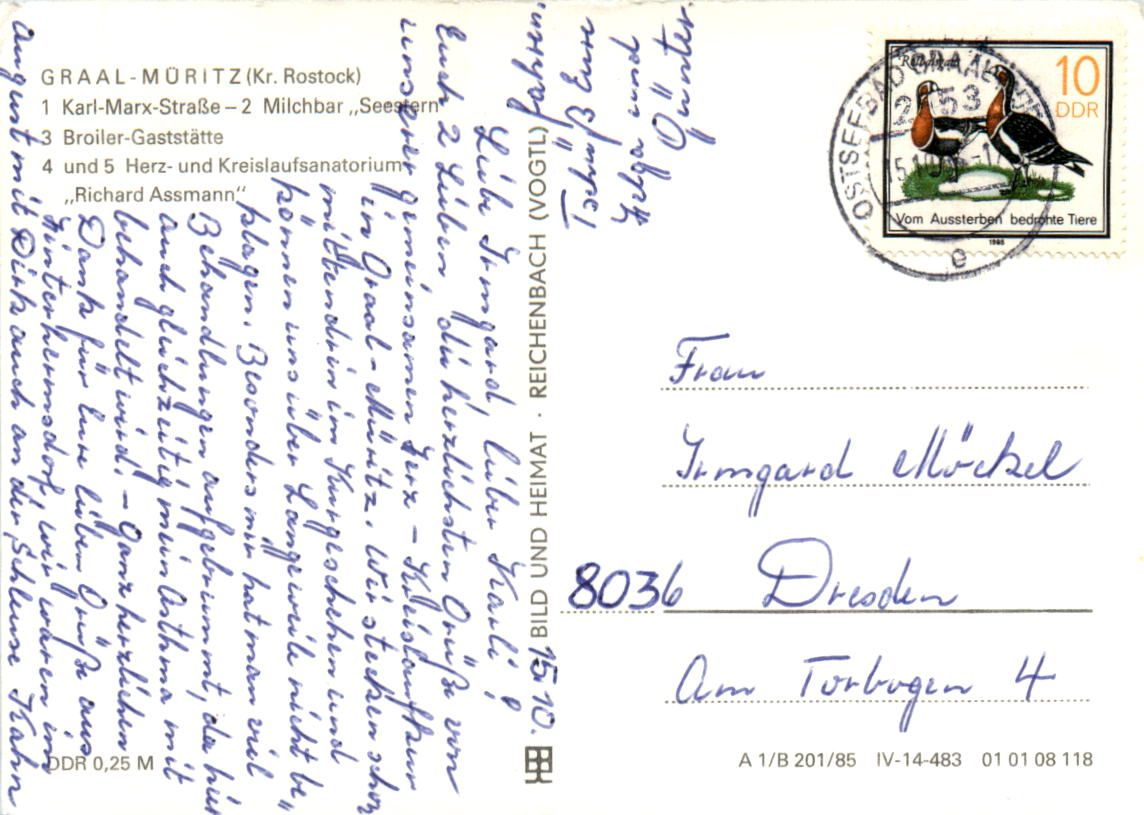 GRAAL-MÜRITZ (Kr. Rostock)
1 Karl-Marx-Straße – 2 Milchbar „Seestern"
3 Broiler-Gaststätte
4 und 5 Herz- und Kreislaufsanatorium
„Richard Assmann"
15.10.
Liebe Irmgard, lieber Karli!
Euch 2 Lieben die herzlichsten Grüße von
unserer gemeinsamen Herz-Kreislaufkur
in Graal-Müritz. Wir stecken schon
mittendrin im Kurgeschehen und
können uns über Langeweile nicht be„
klagen. Besonders mir hat man viel
Behandlungen aufgebrummt, da hier
auch gleichzeitig mein Asthma mit
behandelt wird. – Ganz herzlichen
Dank für Eure lieben Grüße aus
Hinterhermsdorf, wir waren im
August mit Dirk auch an der Schleuse Kahn
Günter
BILD UND HEIMAT · REICHENBACH (VOGTL)
DDR 0,25 M
10
DDR
Vom Aussterben bedrohte Tiere
1985
OSTSEEBAD GRAAL-
2553
e
Frau
Irmgard Möckel
8036 Dresden
Am Torbogen 4
A 1/B 201/85 IV-14-483 01 01 08 118